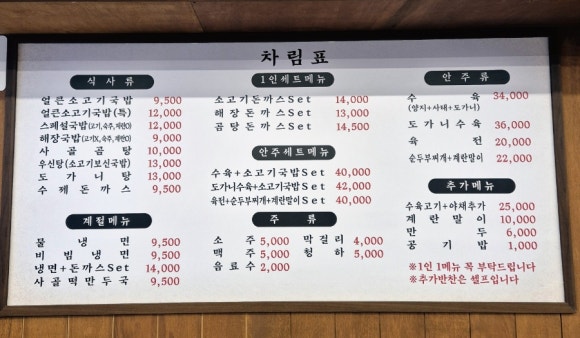 차림표
식사류
얼큰소고기국밥 9,500
얼큰소고기국밥(특) 12,000
스페셜국밥(고기,숙주,계란O) 12,000
해장국밥(고기X,숙주,계란O) 9,000
사골곰탕 10,000
우신탕(소고기보신국밥) 13,000
도가니탕 13,000
수제돈까스 9,500
계절메뉴
물냉면 9,500
비빔냉면 9,500
냉면+돈까스Set 14,000
사골떡만두국 9,500
1인세트메뉴
소고기돈까스Set 14,000
해장돈까스Set 13,000
곰탕돈까스Set 14,500
안주세트메뉴
수육+소고기국밥Set 40,000
도가니수육+소고기국밥Set 42,000
육전+순두부찌개+계란말이Set 40,000
주류
소주 5,000 막걸리 4,000
맥주 5,000 청하 5,000
음료수 2,000
안주류
수육 34,000
(양지+사태+도가니)
도가니수육 36,000
육전 20,000
순두부찌개+계란말이 22,000
추가메뉴
수육고기+야채추가 25,000
계란말이 10,000
만두 6,000
공기밥 1,000
※1인 1메뉴 꼭 부탁드립니다
※추가반찬은 셀프입니다